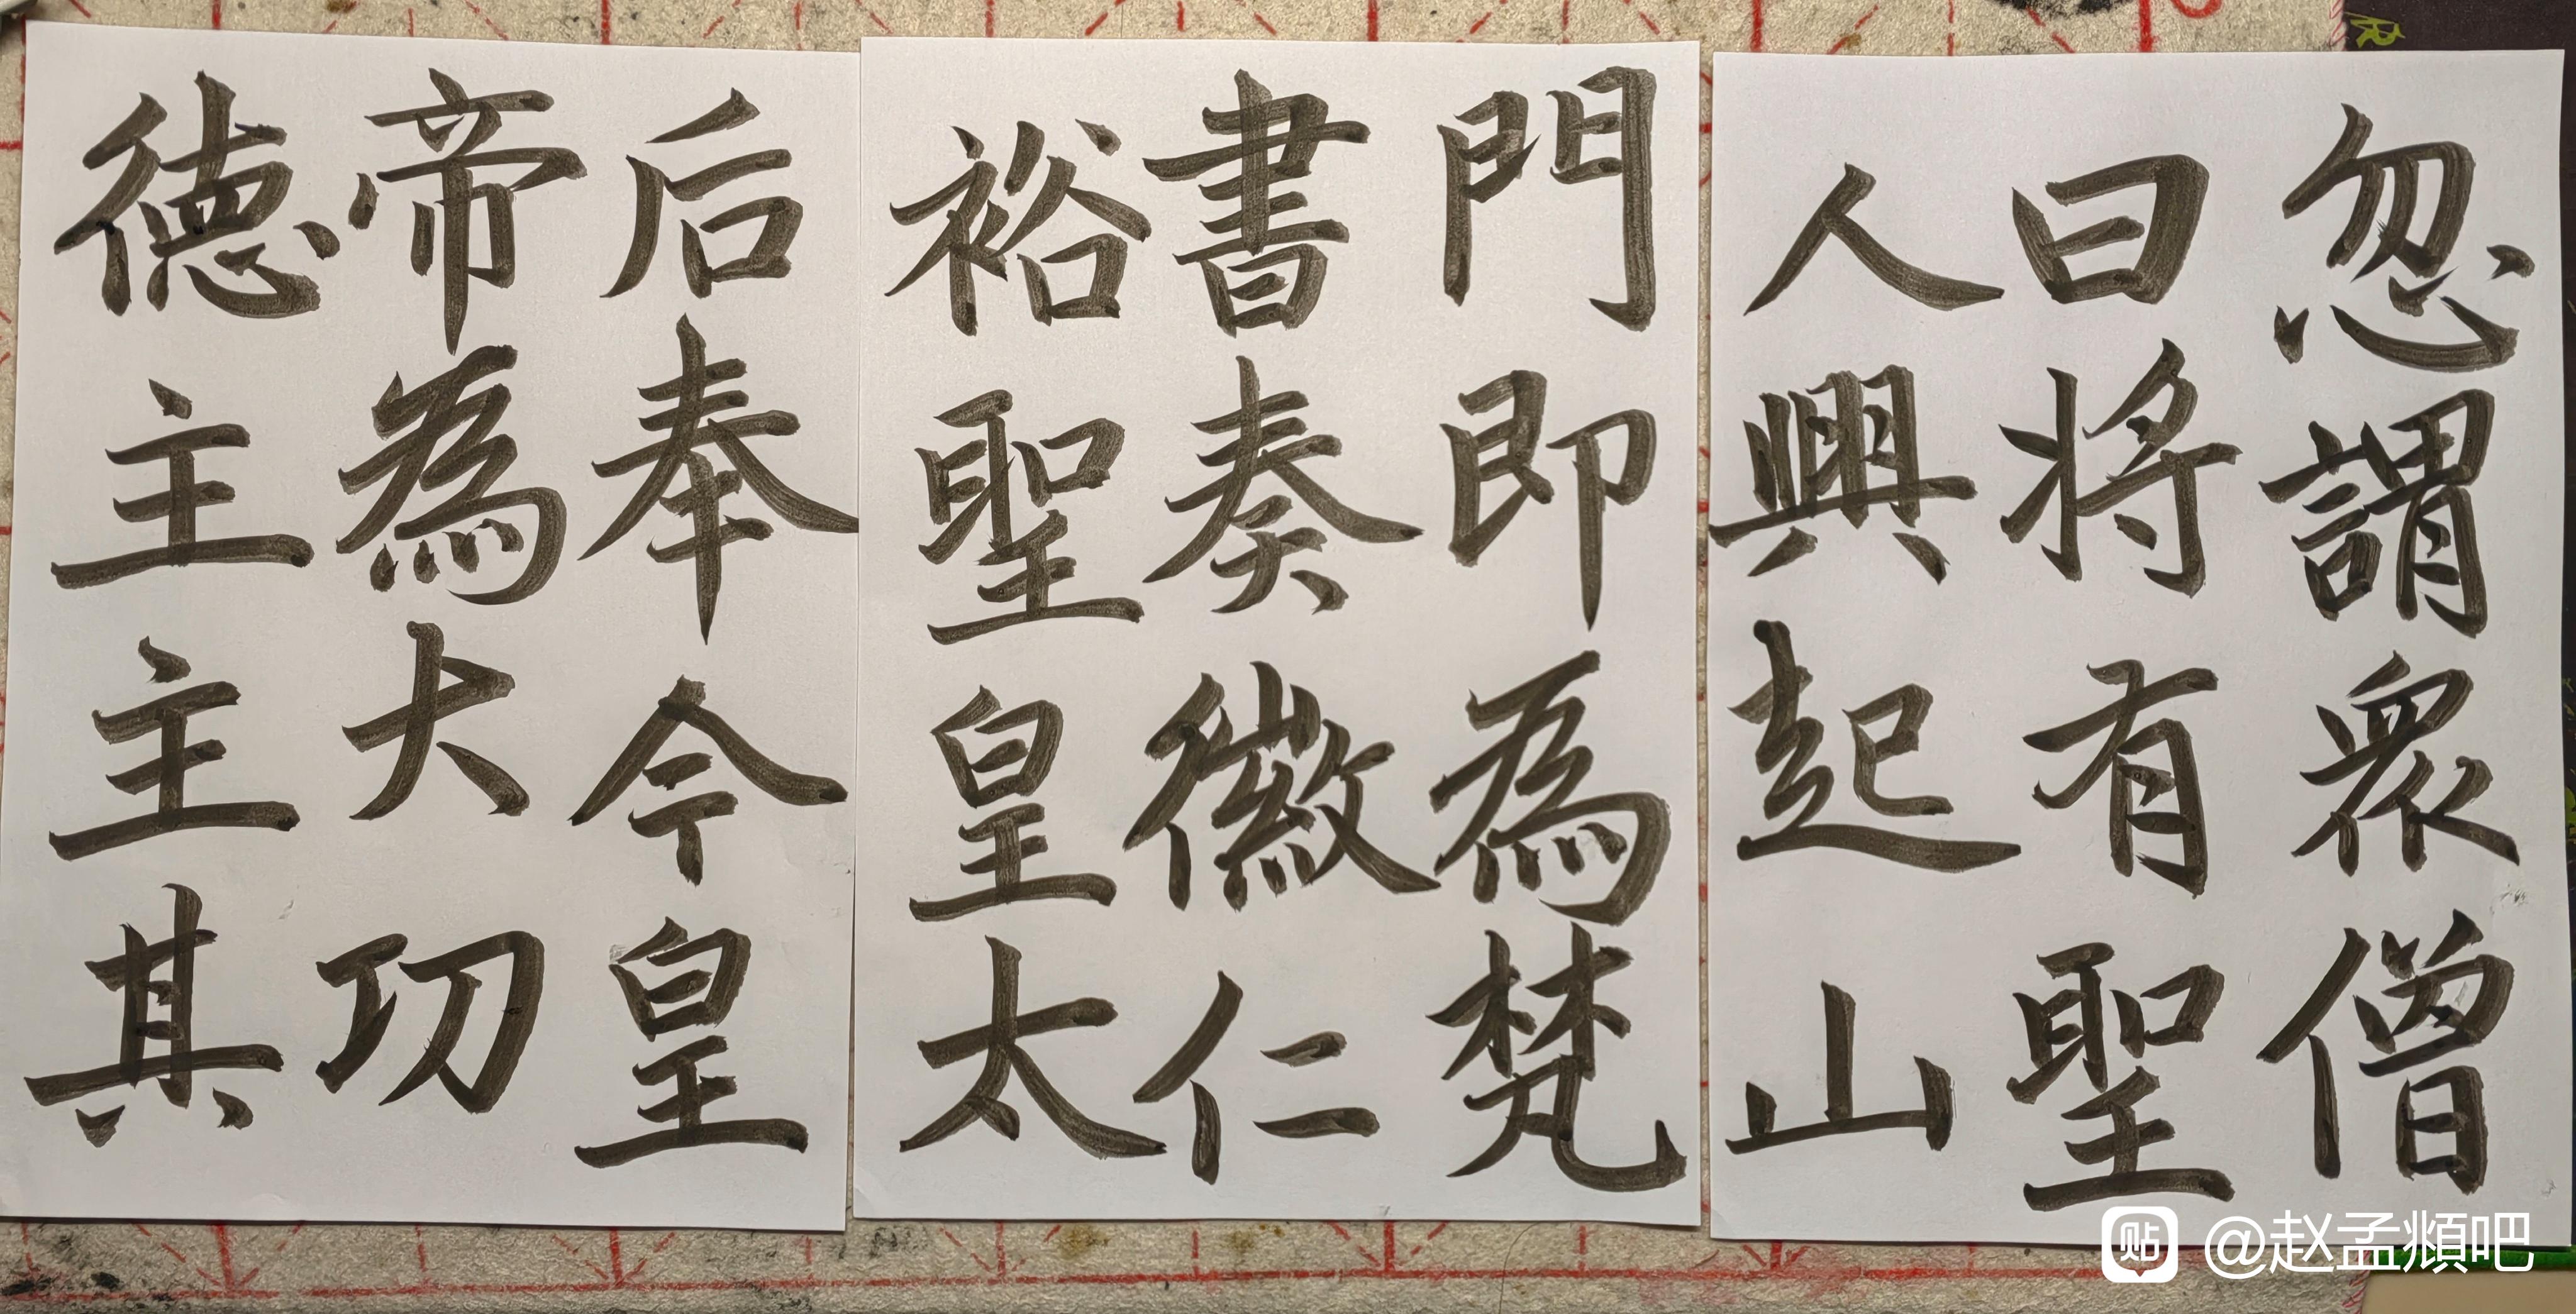 忽謂衆僧
曰将有聖
人興起山
門即為梵
書奏徽仁
裕聖皇太
后奉今皇
帝為大功
德主主其
贴 @赵孟頫吧